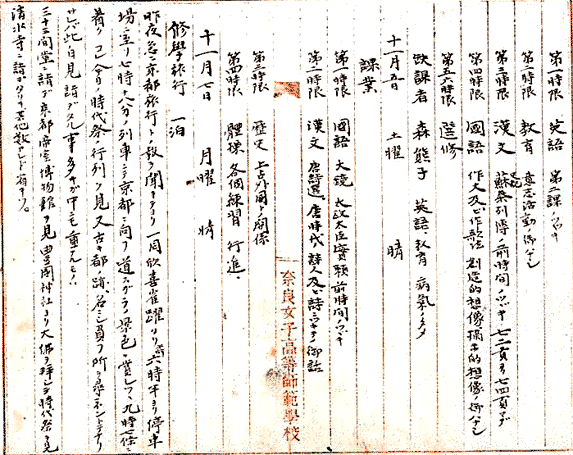 第一時限 英語 第二課ノつゞき
第二時限 教育 意志活動ノ御ハナシ
第三時限 漢文 蘇秦列傳ノ前時間ノつゞき 七二頁ヨリ七四頁マデ
第四時限 國語 作文及ビ作歌法 創造的想像 ノ御ハナシ
第五六時限 選修
欠課者 森熊子 英語、教育 病氣ノタメ
十一月五日 土曜 晴
課業
第一時限 國語 大鏡 太政大臣實賴 前時間ノつゞき
第二時限 漢文 唐詩選、唐時代ノ詩人及ビ詩ニツキテノ御話
第三時限 歴史 上古外國トノ關係
第四時限 體操 各個練習 行進、
奈良女子高等師範學校
十一月七日 月曜 晴
修學旅行 一泊
昨夜急ニ京都旅行トノ報ヲ聞キタリ 一同欣喜雀躍 六時半ヨリ停車
場ニ至リ七時十八分ノ列車ニテ京都ニ向フ 道スガラノ景色ヲ賞シツヽ九時七條ニ
着ク 時代祭ノ行列ヲ見又古キ都ノ跡、名ニシ負フ所ヲ尋ネントテナリ
此ノ日見 詣デタル 多キガ中モ重ナルモノハ
三十三間堂ニ詣デ京都帝室博物館ヲ見 豊國神社ヨリ大佛ヲ拝シテ時代祭ヲ見
清水寺ニ詣デタリ 其他数